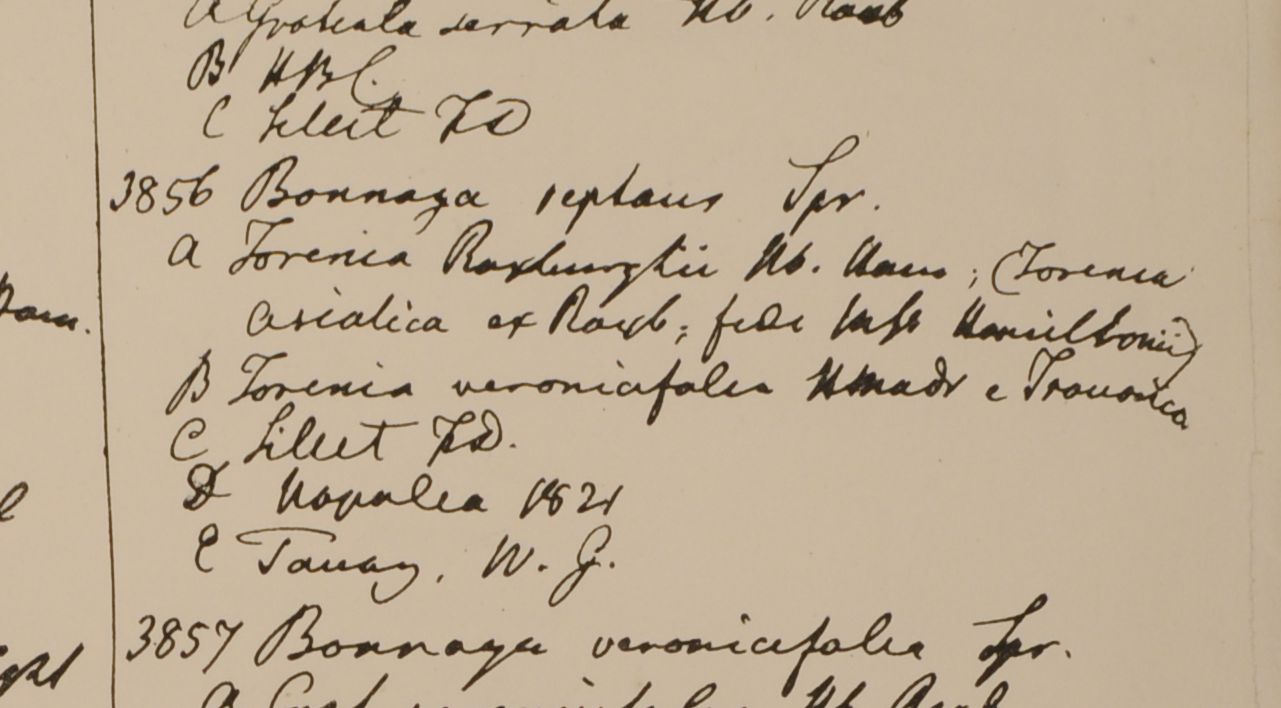 A Gratiola serrata Hb. Roxb
B HBC.
C Silect FD
3856 Bonnaya reptans Spr.
Ham.
A Torenia Roxburghii Hb. Ham; (Torenia
asiatica ex Roxb; fide Mss Hamiltonii)
B Torenia veronicifolia HMadr e Travanca
C Silect FD.
D Napalia 1821
E Tavoy, W. G.
3857 Bonnaya veronicifolia Spr.
ght
Hb. Roxb